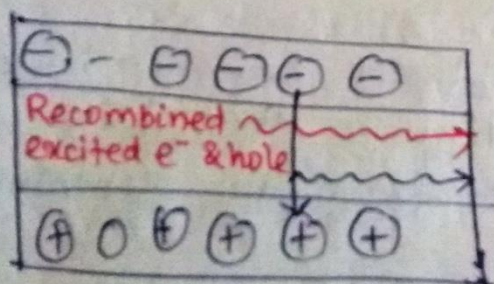 ⊖ - ⊖ ⊖ ⊖ ⊖
Recombined
excited e⁻ & hole
⊕ O ⊕ ⊕ ⊕ ⊕